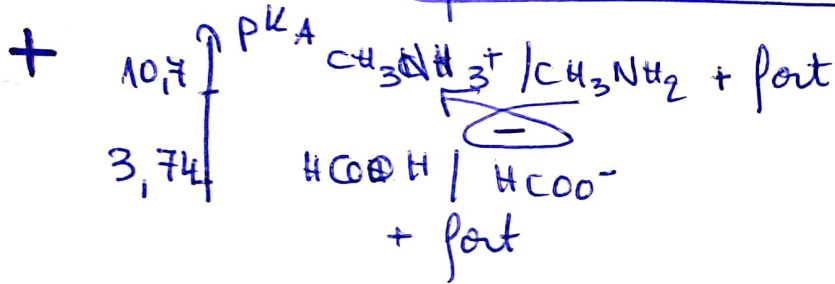 + pKA
10,7 CH3NH3+ / CH3NH2 + fort
-
3,74 HCOOH / HCOO-
+ fort